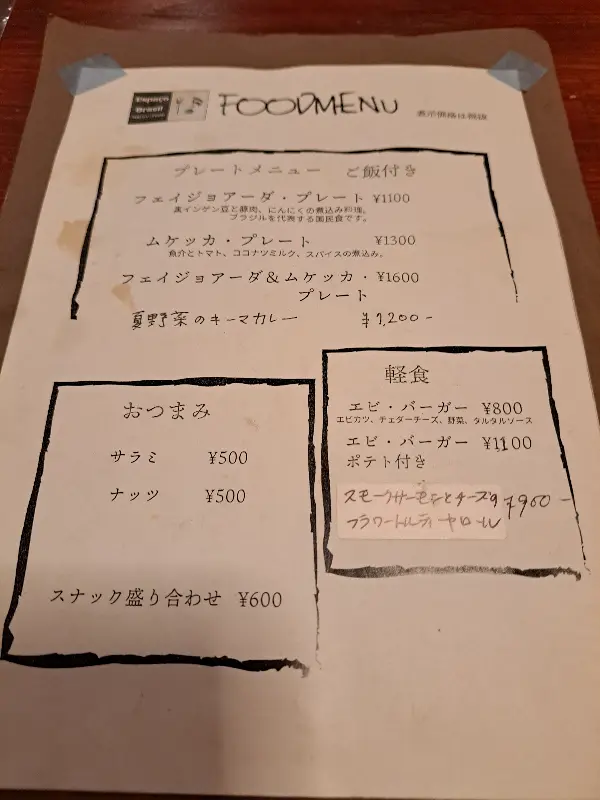 Espaço
Brasil
FOODMENU
表示価格は税抜
プレートメニュー ご飯付き
フェイジョアーダ・プレート ¥1100
黒インゲン豆と豚肉、にんにくの煮込み料理。
ブラジルを代表する国民食です。
ムケッカ・プレート ¥1300
魚介とトマト、ココナツミルク、スパイスの煮込み。
フェイジョアーダ&ムケッカ・ ¥1600
プレート
夏野菜のキーマカレー ¥1,200-
軽食
エビ・バーガー ¥800
エビカツ、チェダーチーズ、野菜、タルタルソース
エビ・バーガー ¥1100
ポテト付き
スモークサーモンとチーズの ¥900-
フラワートルティーヤロール
おつまみ
サラミ ¥500
ナッツ ¥500
スナック盛り合わせ ¥600